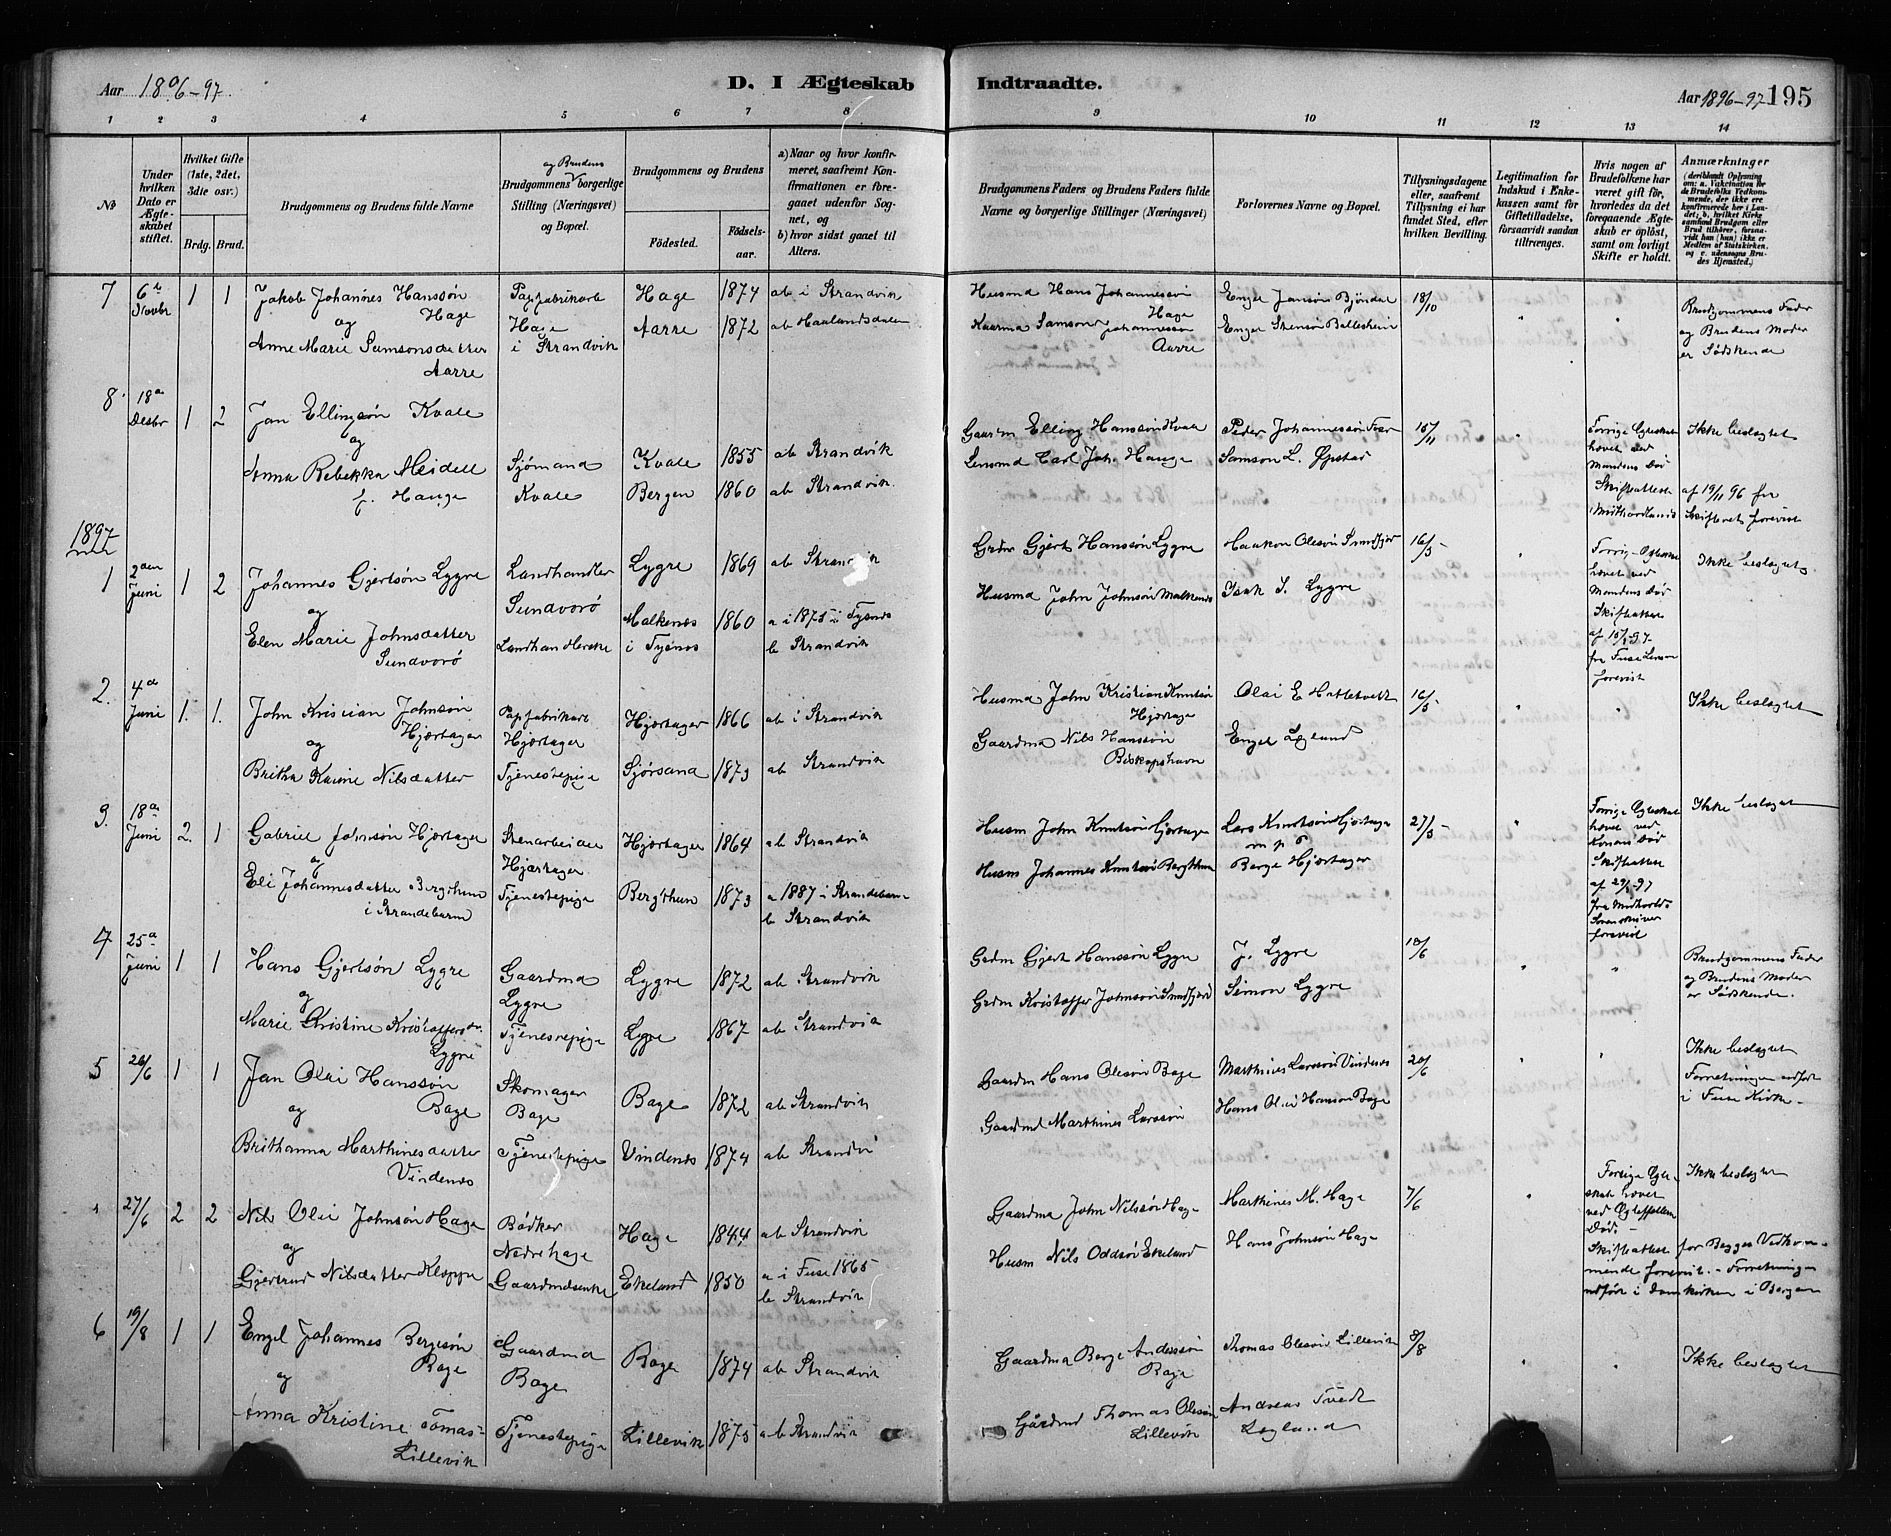 Aar 1896-97.
D. I Ægteskab
Indtraadte.
Aar 1896-97 195
1 2 3 4 5 6 7 8 9 10 11 12 13 14
No
Under hvilken Dato er Ægteskabet stiftet.
Hvilket Gifte (1ste, 2det, 3die osv.)
Brdg. Brud.
Brudgommens og Brudens fulde Navne
og Brudens
Brudgommens borgerlige Stilling (Næringsvei) og Bopæl.
Brudgommens og Brudens
Fødested. Fødselsaar.
a) Naar og hvor konfirmeret, saafremt Konfirmationen er foregaaet udenfor Sognet, og
b) hvor sidst gaaet til Alters.
Brudgommens Faders og Brudens Faders fulde Navne og borgerlige Stillinger (Næringsvei)
Forlovernes Navne og Bopæl.
Tillysningsdagene eller, saafremt Tillysning ei har fundet Sted, efter hvilken Bevilling.
Legitimation for Indskud i Enkekassen samt for Giftetilladelse, forsaavidt saadan tiltrænges.
Hvis nogen af Brudefolkene har været gift før, hvorledes da det foregaaende Ægteskab er opløst, samt om lovligt Skifte er holdt.
Anmærkninger
7 6te Novbr 1 1 Jakob Johannes Hanssøn Hage
og
Anne Marie Samsonsdatter Aarre
Papfabrikarb Hage i Strandvik
Hage 1874 ab i Strandvik
Aarre 1872 ab Haalandsdalen
Husmd Hans Johannessøn Hage
Kaarma Samson Johannessøn Aarre
Engel Jansøn Bjøndal
Engel Stensøn Balleshein
18/10
Brudgommens Fader og Brudens Moder er Sødskende
8 18de Desbr 1 2 Jan Ellingsøn Kvale
og
Anna Rebekka Meidell f. Hauge
Sjømand Kvale
Kvale 1855 ab Strandvik
Bergen 1860 ab Strandvik
Gaardm Elling Hanssøn Kvale
Lensmd Carl Joh. Hauge
Peder Johannessøn
Samson L. Øpstad
15/11
Forrige Egteskab hævet ved Mandens Død
Skifteattest af 19/11 96 fra Midthordlands Skifteret forevist
Ikke beslægtet
1897
1 2den Juni 1 2 Johannes Gjertsøn Lygre
og
Elen Marie Johnsdatter Sundvorø
Landhandler Sundvorø
Landhandlerske
Lygre 1869 ab Strandvik
Malkenes i Tysnes 1860 a i 1875 i Tysnes
b Strandvik
Grdm Gjert Hanssøn Lygre
Husmd John Johnsøn Malkenes
Haakon Olesøn Sundfjor
Isak S. Lygre
16/5
Forrig Egteskab hævet ved Mandens Død
Skifteattest af 15/1 97. fra Fuse Lensm forevist
Ikke beslægtet
2. 4de Juni 1. 1. John Kristian Johnsøn Hjørtager
og
Britha Karine Nilsdatter
Papfabrikarb Hjørtager
Tjenestepige
Hjørtager 1866 ab i Strandvik
Sjørsand 1873 ab Strandvik
Husmd John Kristian Knutsøn Hjørtage
Gaardma Nils Hanssøn Biskopshavn
Olai E Hatletvedt
Engel Lægland
16/5
Ikke beslægtet
3. 18de Juni 2. 1 Gabriel Johnsøn Hjørtager
og
Eli Johannesdatter Bergthun i Strandebarm
Stenarbeider Hjørtager
Tjenestepige
Hjørtager 1864 ab Strandvik
Bergthun 1873 a 1887 i Strandebarm
b Strandvik
Husm John Knutsøn Hjortage
Husm Johannes Knutsøn Bergthun
Lars Knutsøn Hjortage
m p P
Børge Hjørtager
27/5
Forrige Egteskab hævet ved Konens Død
Skifteattest af 29/5 97 fra Midhordl. Sorenskriver forevist
Ikke beslægtet
4 25de Juni 1 1 Hans Gjertsøn Lygre
og
Marie Kristine Kristoffersdtr Lygre
Gaardma Lygre
Tjenestepige
Lygre 1872 ab Strandvik
Lygre 1867 ab Strandvik
Grdm Gjert Hanssøn Lygre
Grdm Kristoffer Johnsøn Sundfjord
J. Lygre
Simon Lygre
18/6
Brudgommens Fader og Brudens Moder er Sødskende.
5 26/6 1 1 Jan Olai Hanssøn Bage
og
Brithanna Marthinesdatter Vindenes
Skomager Bage
Tjenestepige
Bage 1872 ab Strandvik
Vindenes 1874 ab Strandvi
Gaardm Hans Olesøn Bage
Gaardmd Marthines Larssøn
Marthines Larssøn Vindenes
Hans Olai Hanson Bage
20/6
Ikke beslægtet
Forretningen udført i Fuse Kirke
27/6 2 2 Nils Olai Johnsøn Hage
og
Gjertrud Nilsdatter Kleppe
Bødker Nedrehage
Gaardmdsenke
Hage 1844 ab Strandvik
Ekeland 1850 a i Fuse 1865
b Strandvik
Gaardma John Nilssøn Hage
Husm Nils Oddsøn Ekeland
Marthines M. Hage
Hans Johnsøn Hage
7/6
Forrige Egteskab hævet ved Egtefællens Død
Skifteattest for Begges Vedkommende forevist. - Forretningen udført i Domkirken i Bergen
Ikke beslægtet
6 19/8 1 1 Engel Johannes Børgesøn Bage
og
Anna Kristine Tomas- Lillevik
Gaardmd Bage
Tjenestepige
Bage 1874 ab Strandvik
Lillevik 1875 ab Strandvik
Gaardma Børge Anderssøn Bage
Gårdmd Thomas Olesøn Lillevik
Thomas Olesøn Lillevik
Andreas Tvedt Legland
8/8
Ikke beslægtet